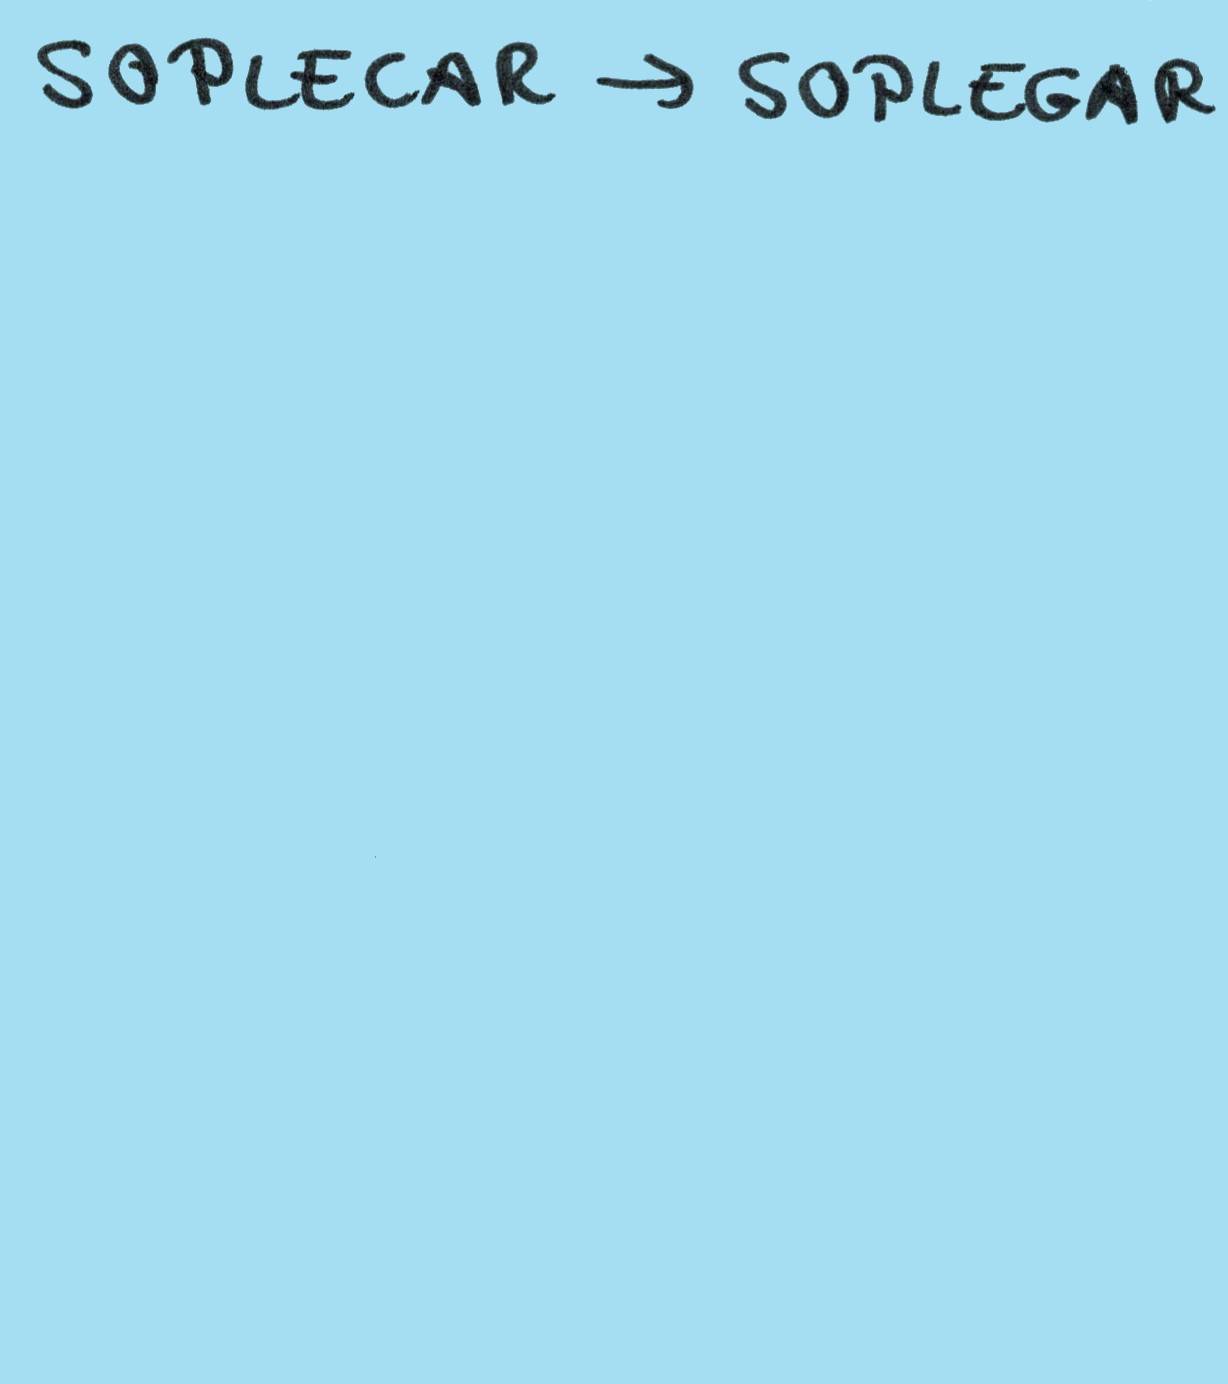 SOPLECAR → SOPLEGAR